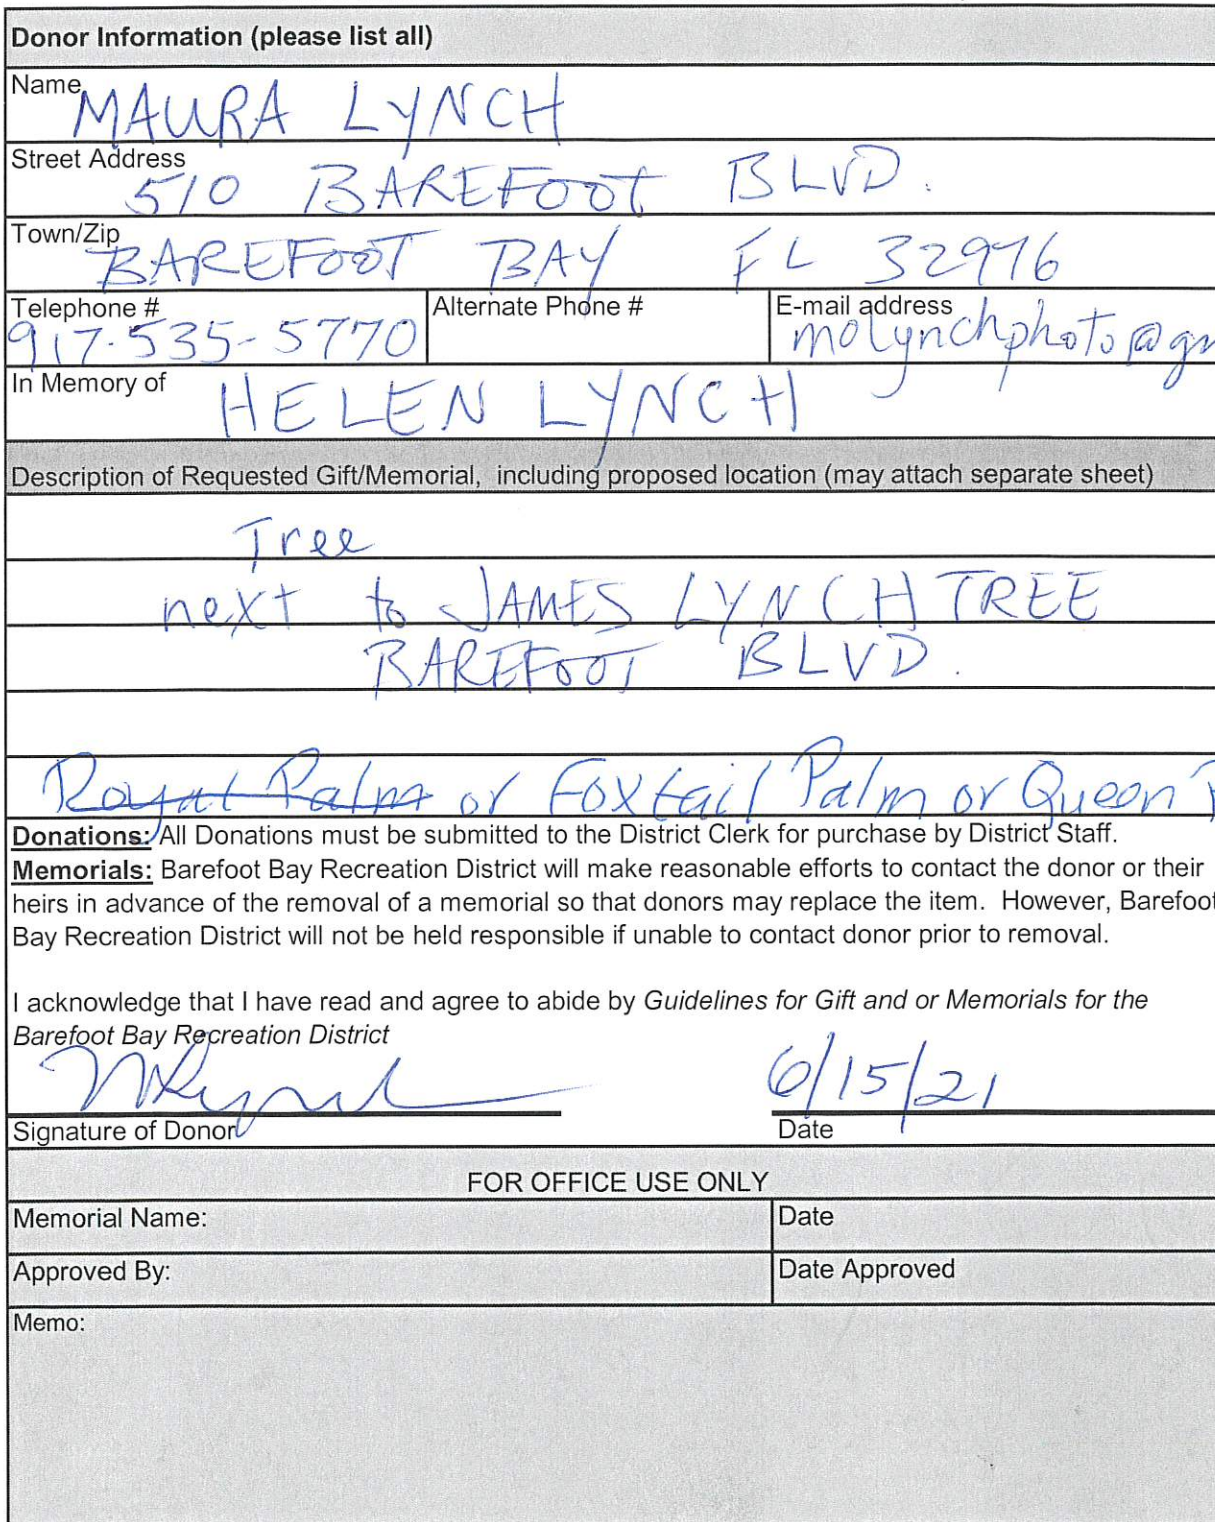 Donor Information (please list all)
Name MAURA LYNCH
Street Address 510 BAREFOOT BLVD.
Town/Zip BAREFOOT BAY FL 32976
Telephone # Alternate Phone # E-mail address
917-535-5770 molynchphoto@gm
In Memory of HELEN LYNCH
Description of Requested Gift/Memorial, including proposed location (may attach separate sheet)
Tree
next to JAMES LYNCH TREE
BAREFOOT BLVD.
Royal Palm or Foxtail Palm or Queen P
Donations: All Donations must be submitted to the District Clerk for purchase by District Staff.
Memorials: Barefoot Bay Recreation District will make reasonable efforts to contact the donor or their
heirs in advance of the removal of a memorial so that donors may replace the item. However, Barefoot
Bay Recreation District will not be held responsible if unable to contact donor prior to removal.
I acknowledge that I have read and agree to abide by Guidelines for Gift and or Memorials for the
Barefoot Bay Recreation District
6/15/21
Signature of Donor Date
FOR OFFICE USE ONLY
Memorial Name: Date
Approved By: Date Approved
Memo: